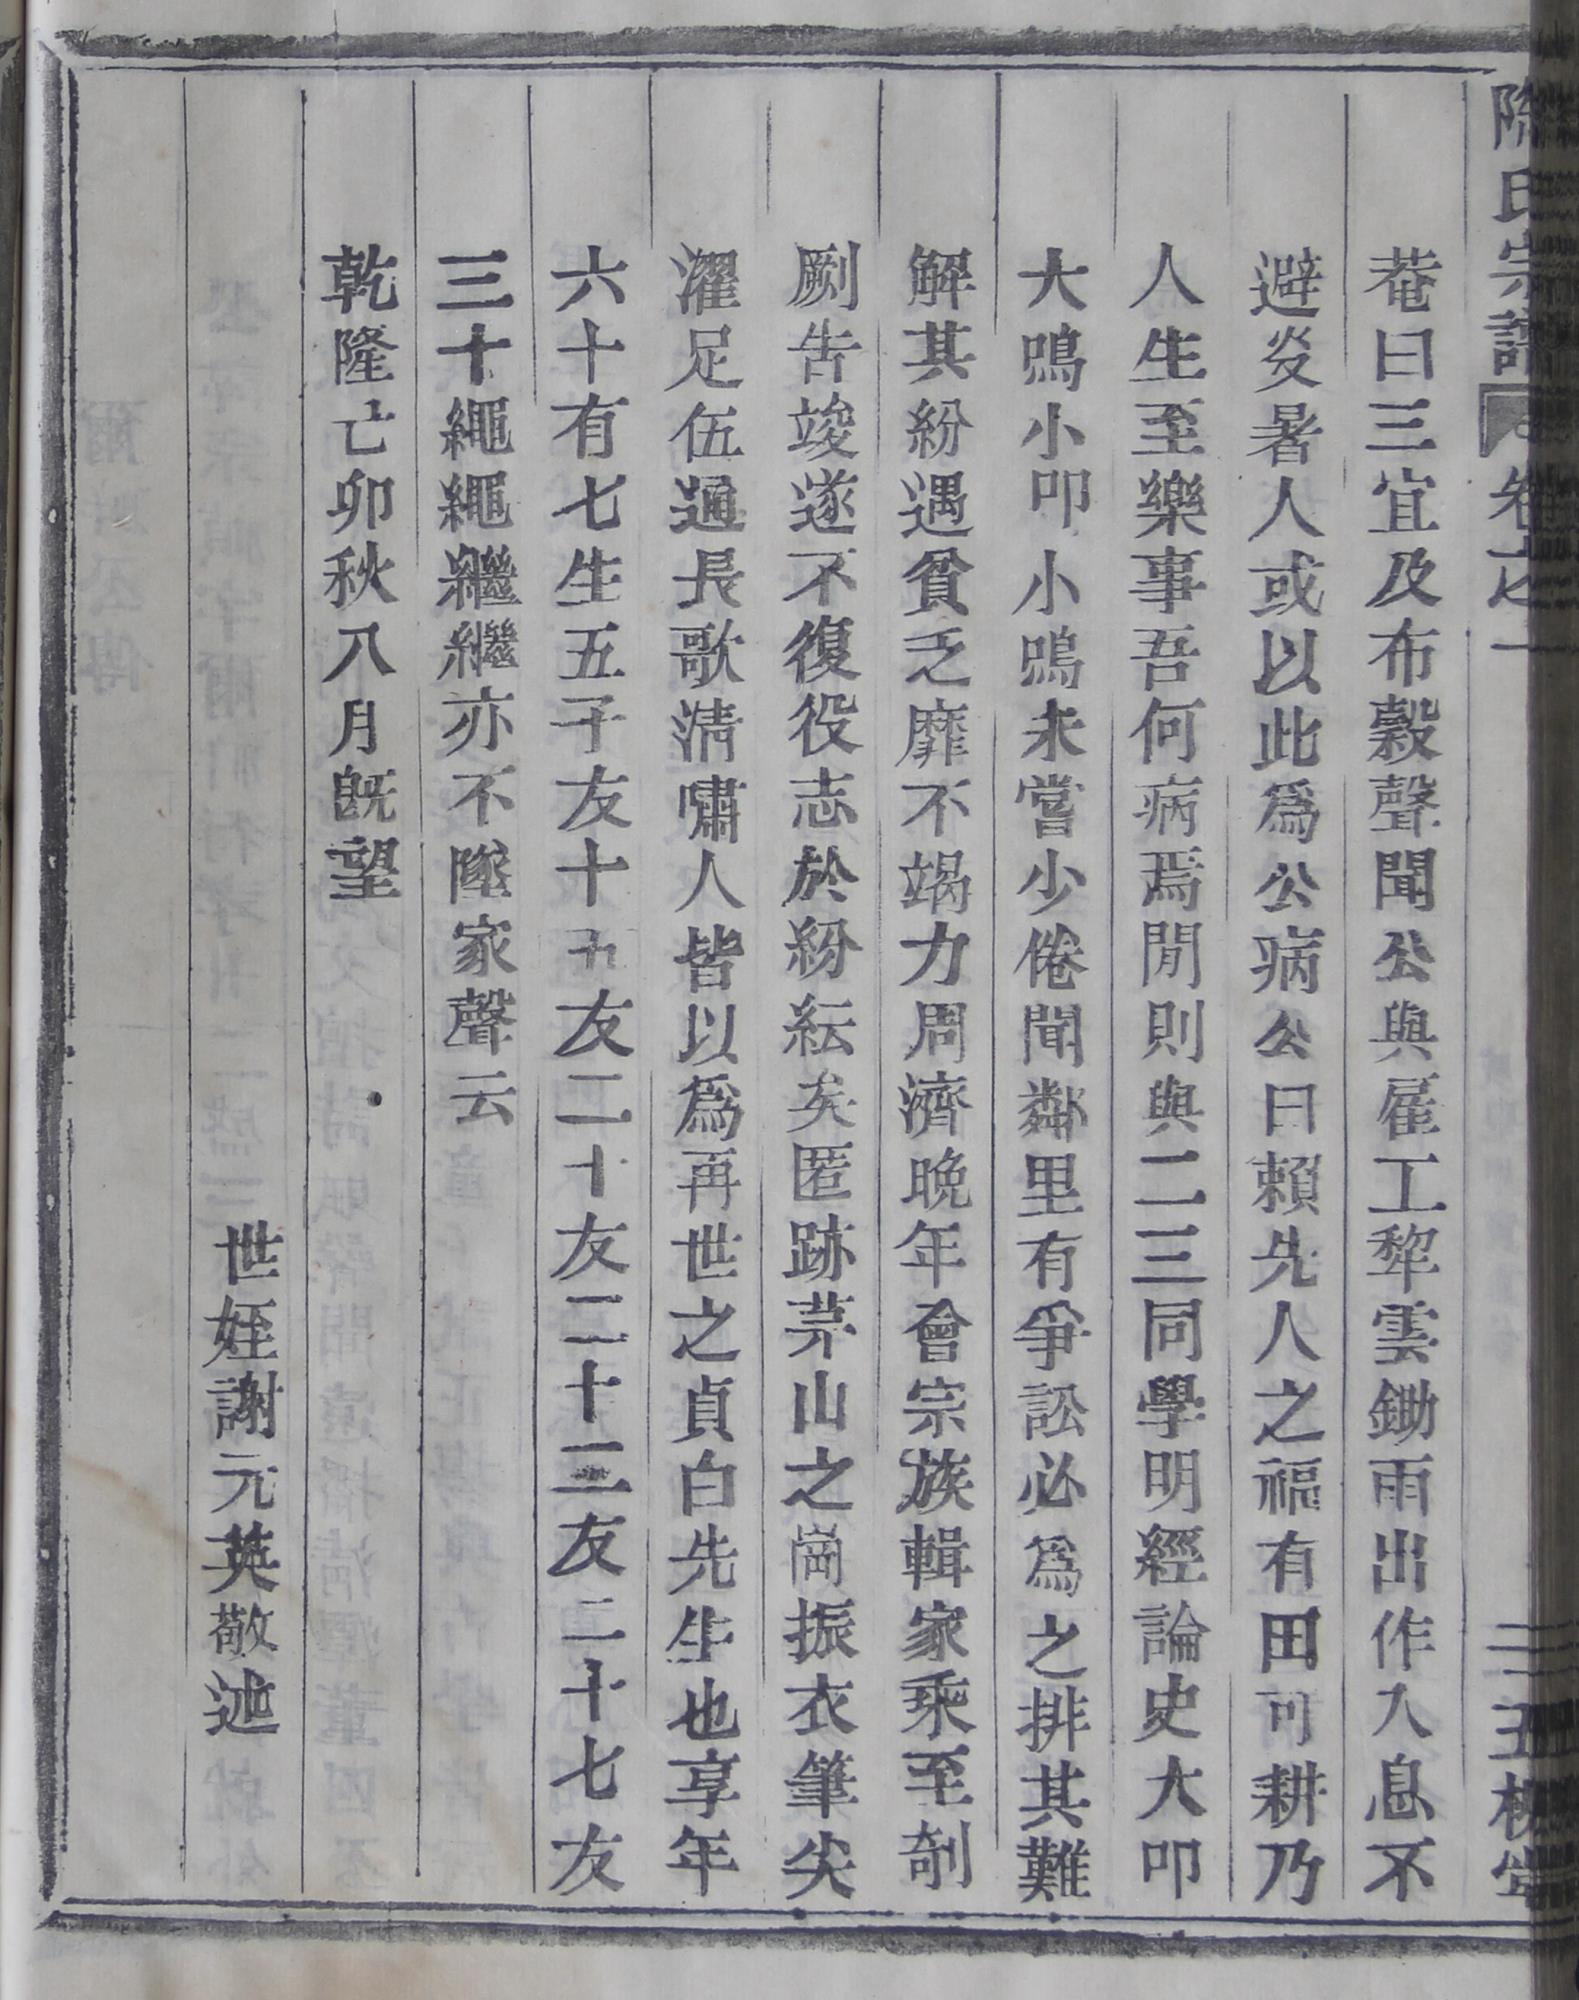 陳氏宗譜 卷之一 三五桂堂
菴曰三宜及布穀聲聞公與雇工犂雲鋤雨出作入息不
避炎暑人或以此爲公病公曰賴先人之福有田可耕乃
人生至樂事吾何病焉閒則與二三同學明經論史大叩
大鳴小叩小鳴未嘗少倦聞鄰里有爭訟必爲之排其難
解其紛遇貧乏靡不竭力周濟晚年會宗族輯家乘至剞
劂告竣遂不復役志於紛紜矣匿跡茅山之崗振衣筆尖
濯足伍通長歌清嘯人皆以爲再世之貞白先生也享年
六十有七生五子友十九友二十友二十三友二十七友
三十繩繩繼繼亦不墜家聲云
乾隆乙卯秋八月旣望
世姪謝元英敬述